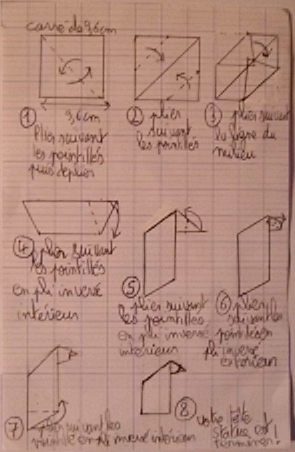 carré de 9,6cm
9,6cm
① Plier suivant
les pointillés
puis déplier
② plier
suivant
les pointillés
③ plier suivant
la ligne du
milieu
④ plier suivant
les pointillés
en pli inversé
intérieur
⑤ plier suivant
les pointillés
en pli inversé
intérieur
⑥ plier
suivant les
pointillés en
pli inversé
extérieur
⑦ plier suivant les
pointillés en pli inversé intérieur
⑧ votre
est
terminer!